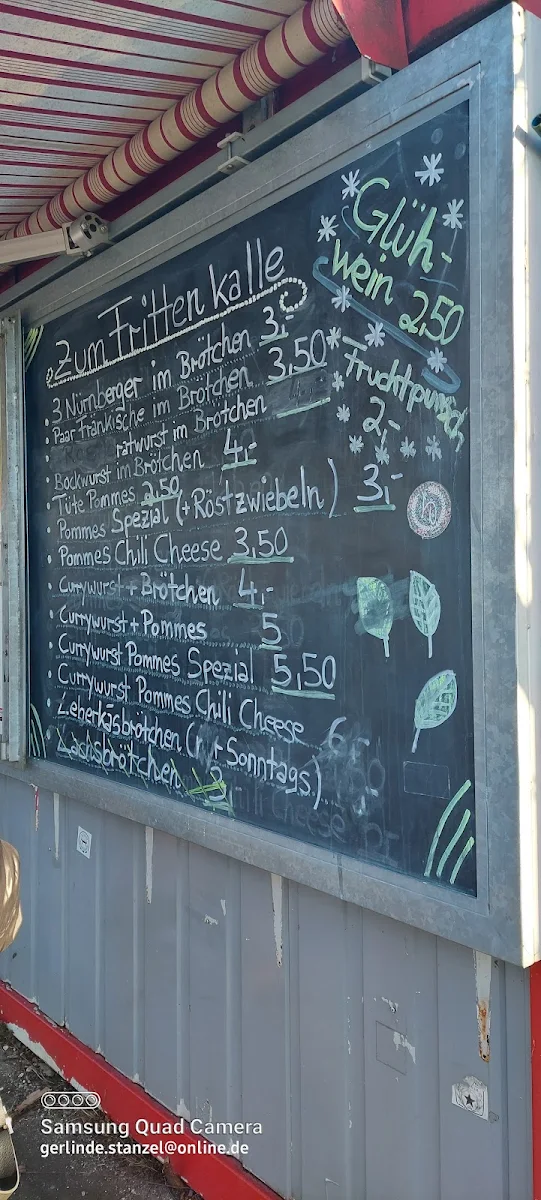 Zum Fritten kalle
3 Nürnberger im Brötchen 3,-
Paar Fränkische im Brötchen 3,50
ratwurst im Brötchen
Bockwurst im Brötchen 4,-
Tüte Pommes 2,50
Pommes Spezial (+Röstzwiebeln) 3,-
Pommes Chili Cheese 3,50
Currywurst + Brötchen 4,-
Currywurst + Pommes 5
Currywurst Pommes Spezial 5,50
Currywurst Pommes Chili Cheese 6,-
Leberkäsbrötchen ( Sonntags.)
Lachsbrötchen
Glüh-
wein 2,50
Fruchtpunsch
2,-
Samsung Quad Camera
gerlinde.stanzel@online.de